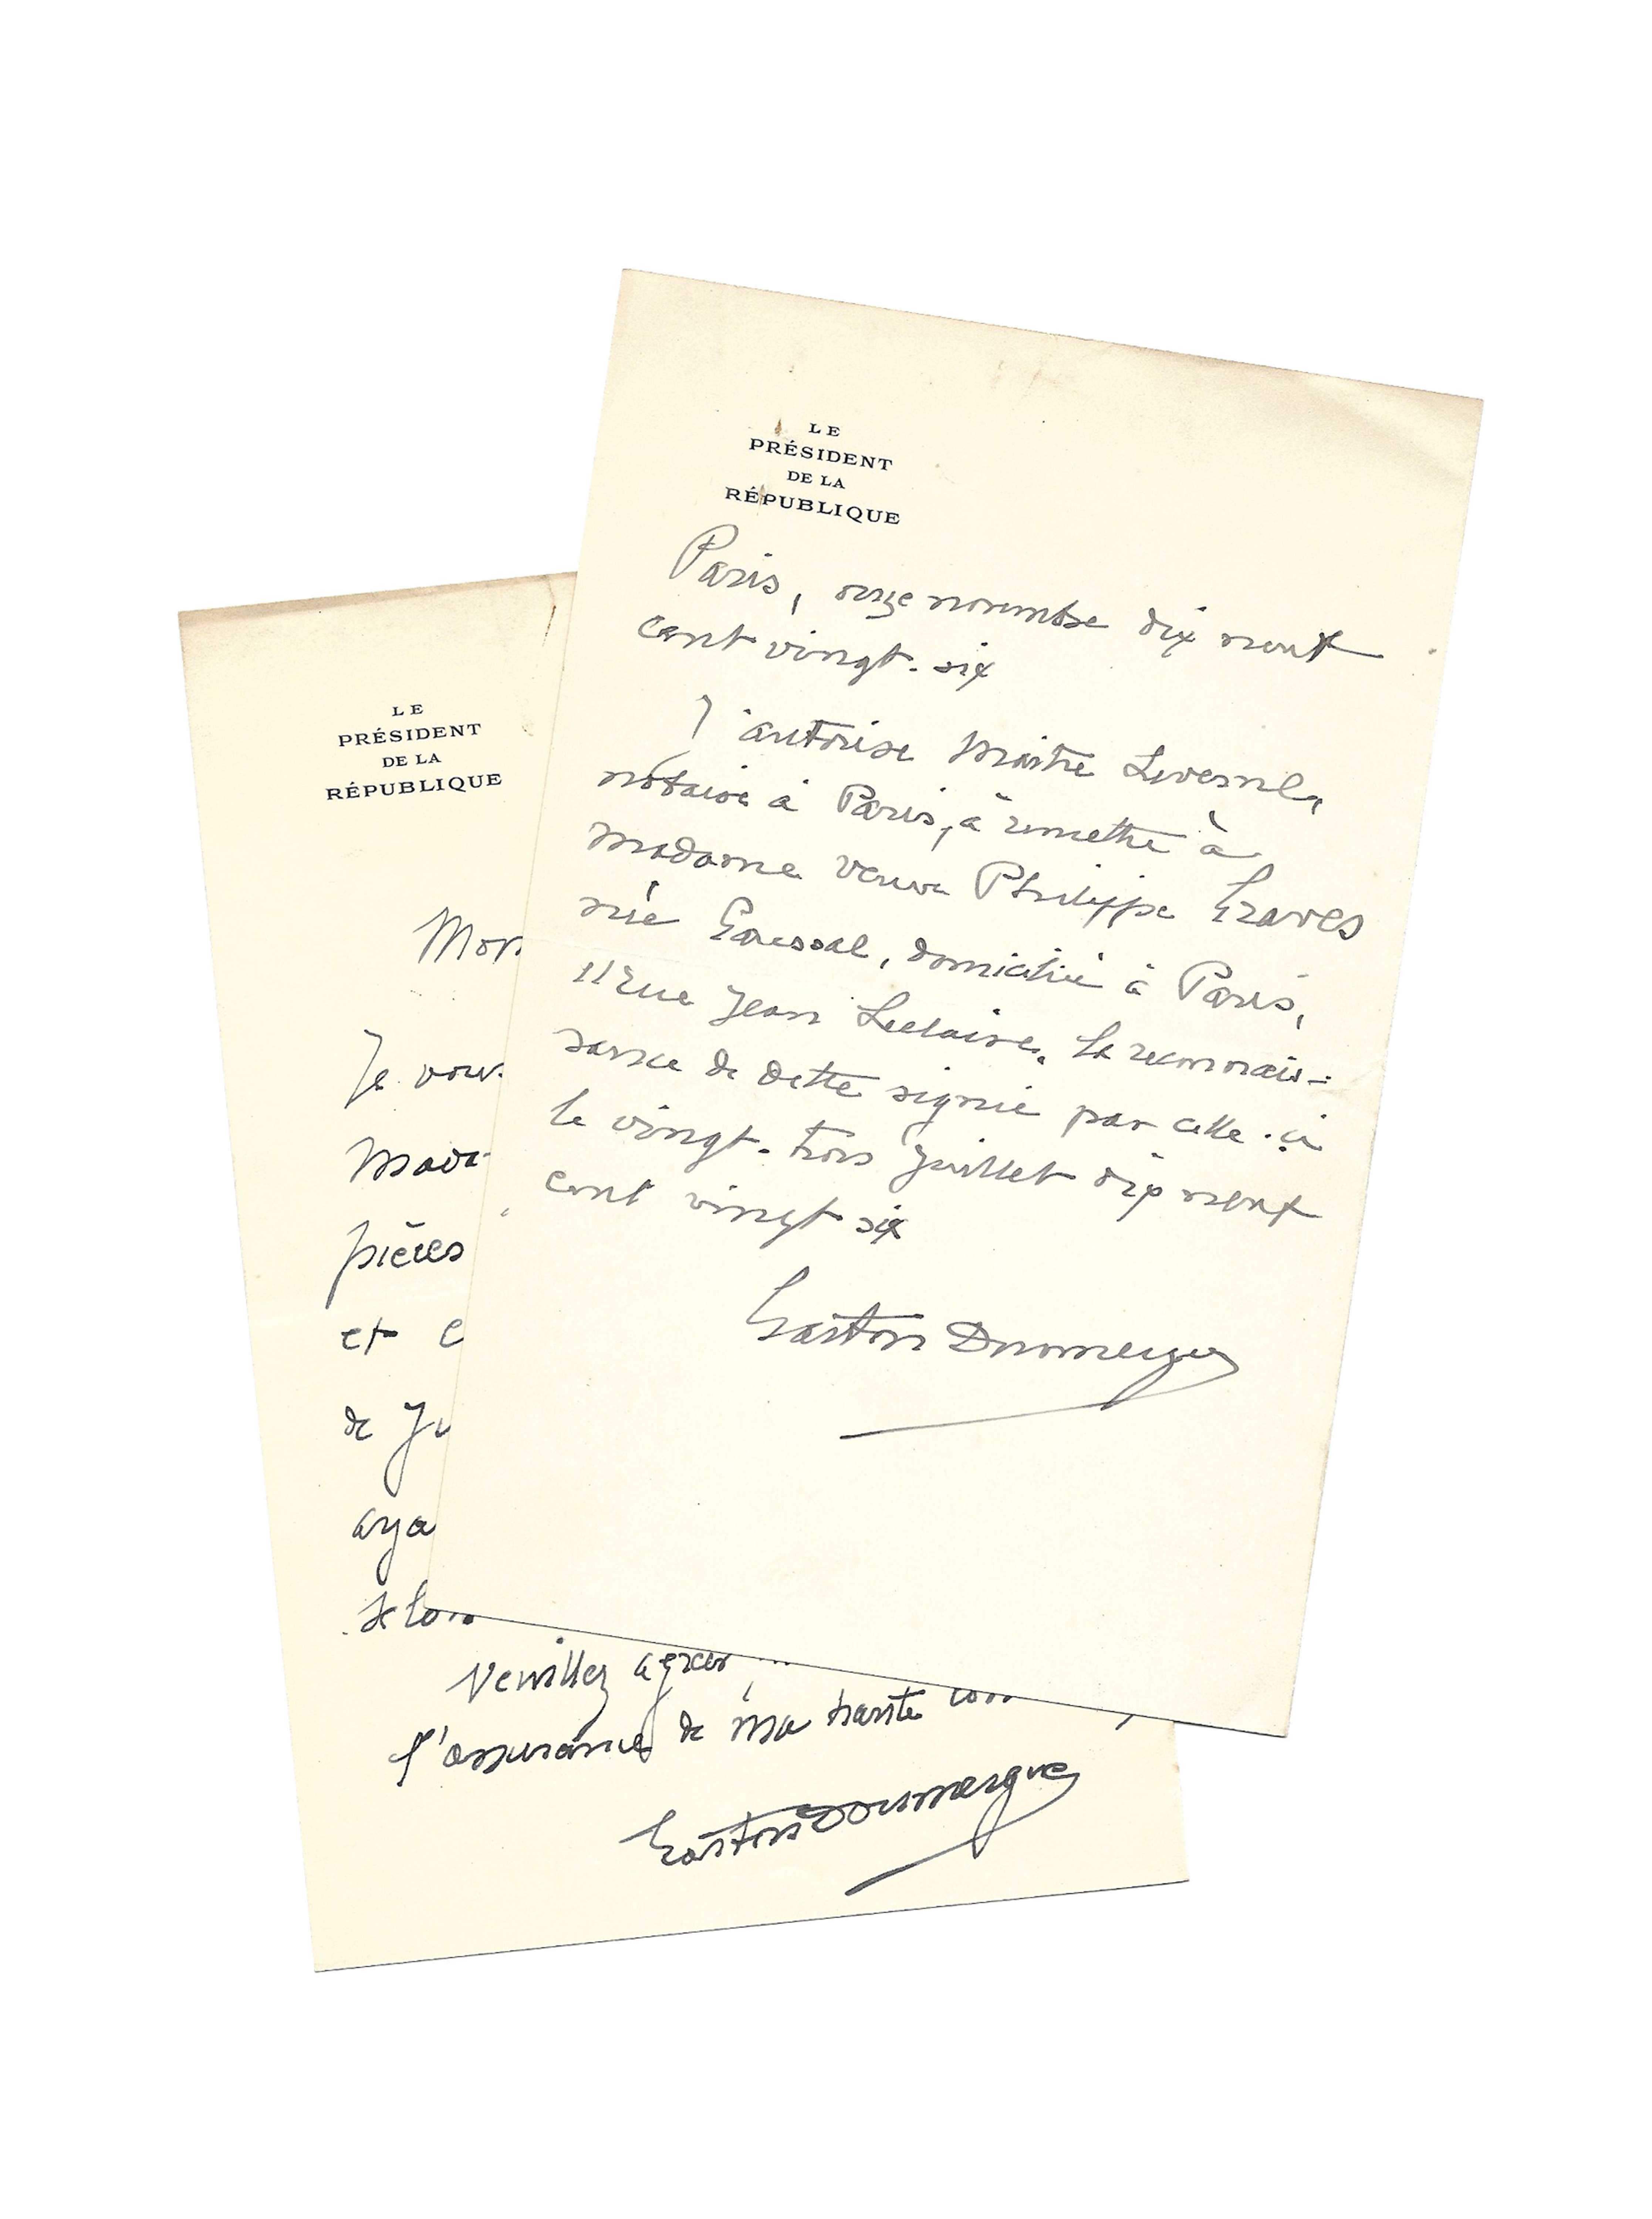 LE
PRÉSIDENT
DE LA
RÉPUBLIQUE
Paris, onze novembre dix neuf
cent vingt-six
J'autorise Maître
notaire à Paris, à remettre à
Madame veuve Philippe Graves
née Goussal, domiciliée à Paris,
11 rue Jean Leclaire, la reconnais-
sance de dette signée par celle-ci
le vingt-trois juillet dix neuf
cent vingt six
Gaston Doumergue
LE
PRÉSIDENT
DE LA
RÉPUBLIQUE
Mon
Je vous
Mada
pièces
et c
de Ju
aya
Veuillez agréer
l'assurance de ma haute con
Gaston Doumergue